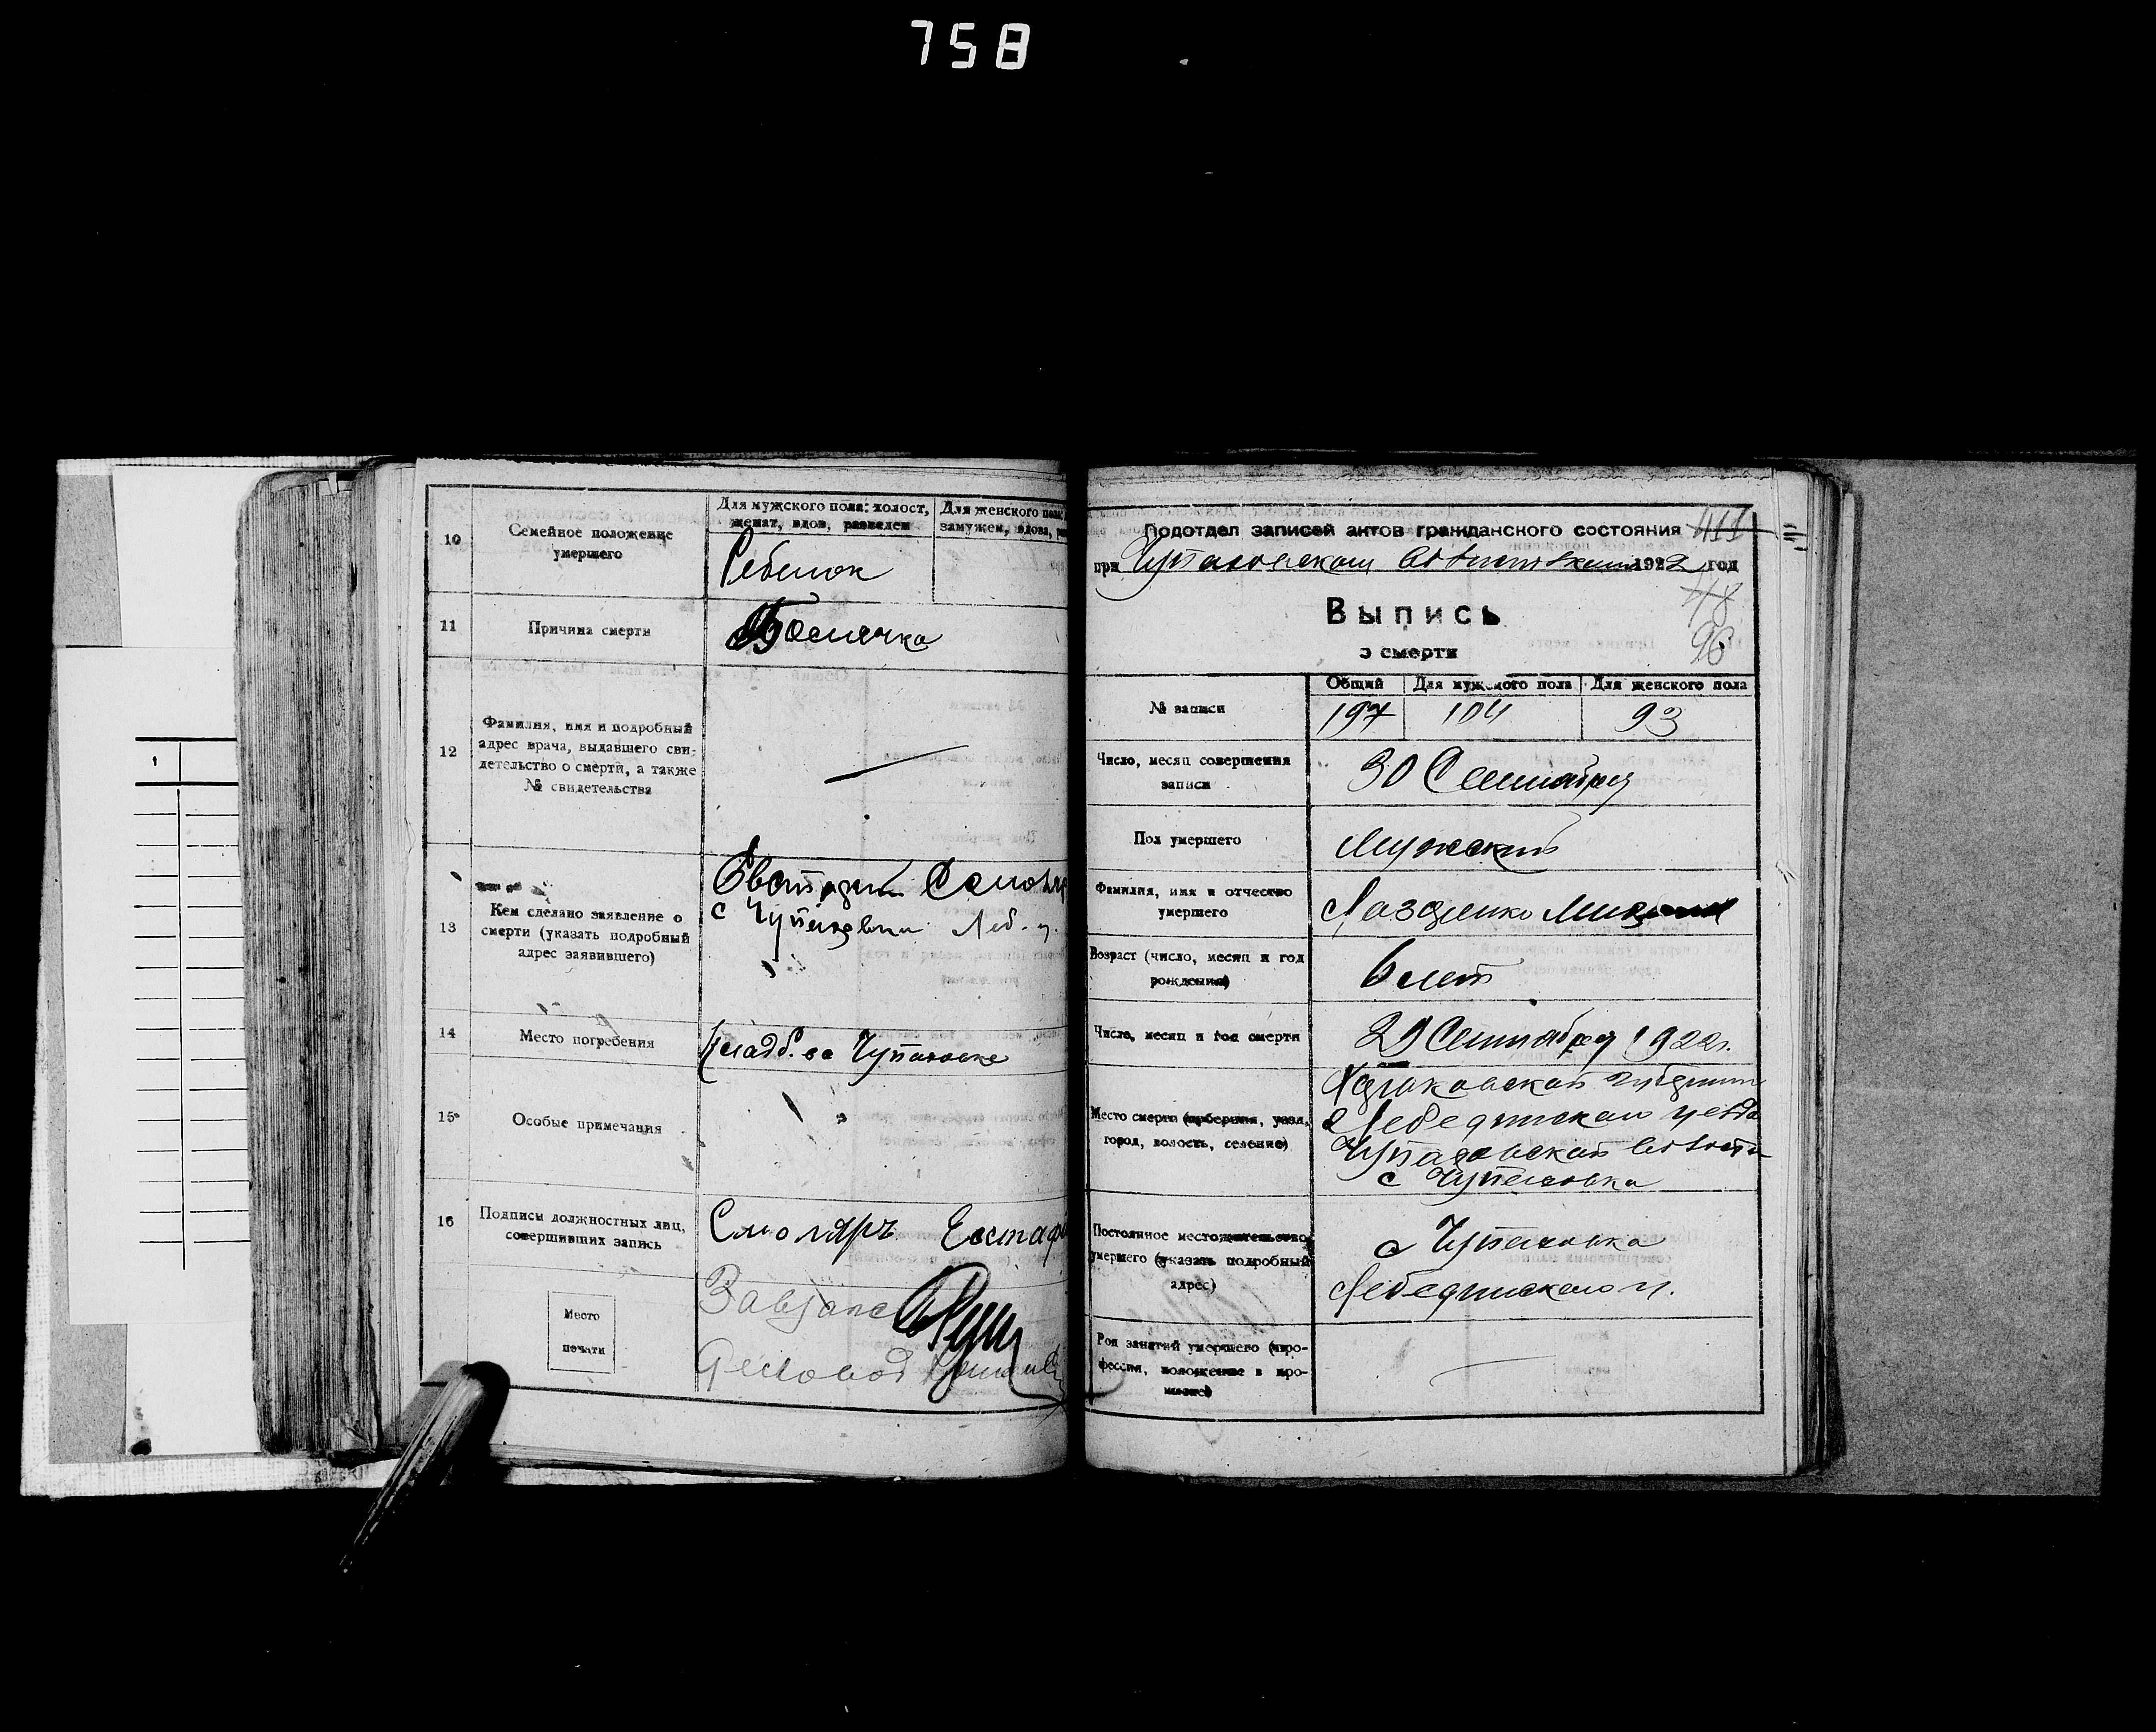 758
10
Семейное положение
умершего
Для мужского пола: холост,
женат, вдов, разведен
Для женского пола
замужем, вдова,
Ребенок
11
Причина смерти
12
Фамилия, имя и подробный
адрес врача, выдавшего сви-
детельство о смерти, а также
№ свидетельства
—
13
Кем сделано заявление о
смерти (указать подробный
адрес заявившего)
с Чупаховки Леб. у.
14
Место погребения
Кладб. во Чупаховке
15
Особые примечания
16
Подписи должностных лиц,
совершивших запись
Смоляръ Евстаф
Место
печати
Завзапс
Деловод
Подотдел записей актов гражданского состояния
411
при Чупаховском 1922 год
48
96
Выпись
о смерти
№ записи
Общий
Для мужского пола
Для женского пола
197
104
93
Число, месяц совершения
записи
30 Сентября
Пол умершего
Мужской
Фамилия, имя и отчество
умершего
Возраст (число, месяц и год
рождения)
6 лет
Число, месяц и год смерти
29 Сентября 1922 г.
Место смерти (губерния, уезд,
город, волость, селение)
Харьковской губернии
Лебединского уезда
Чупаховской волости
с Чупаховка
Постоянное местожительство
умершего (указать подробный
адрес)
с Чупаховка
Лебединского у.
Род занятий умершего (про-
фессия, положение в про-
мысле)
—